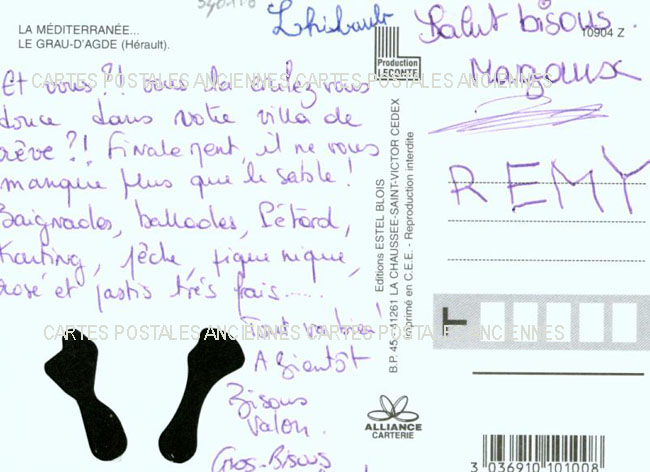 LA MÉDITERRANÉE...
LE GRAU-D'AGDE (Hérault).
Thibault
Et vous?! vous la coulez-vous
douce dans votre villa de
rêve?! Finalement, il ne vous
manque plus que le sable!
Baignades, ballades, Pétard,
Karting, pêche, pique nique,
rosé et pastis très frais......
Tout va bien!
A Bientôt
Bisous
Valon.
Gros-Bisous
Production
LECONTE
Editions ESTEL BLOIS
B.P. 45 - 41261 LA CHAUSSEE-SAINT-VICTOR CEDEX
Imprimé en C.E.E. - Reproduction interdite
ALLIANCE
CARTERIE
Salut bisous
10904 Z
Margaux
REMY
3 036910 101008
CARTES POSTALES ANCIENNES CARTES POSTALES ANCIENNES
CARTES POSTALES ANCIENNES CARTES POSTALES ANCIENNES